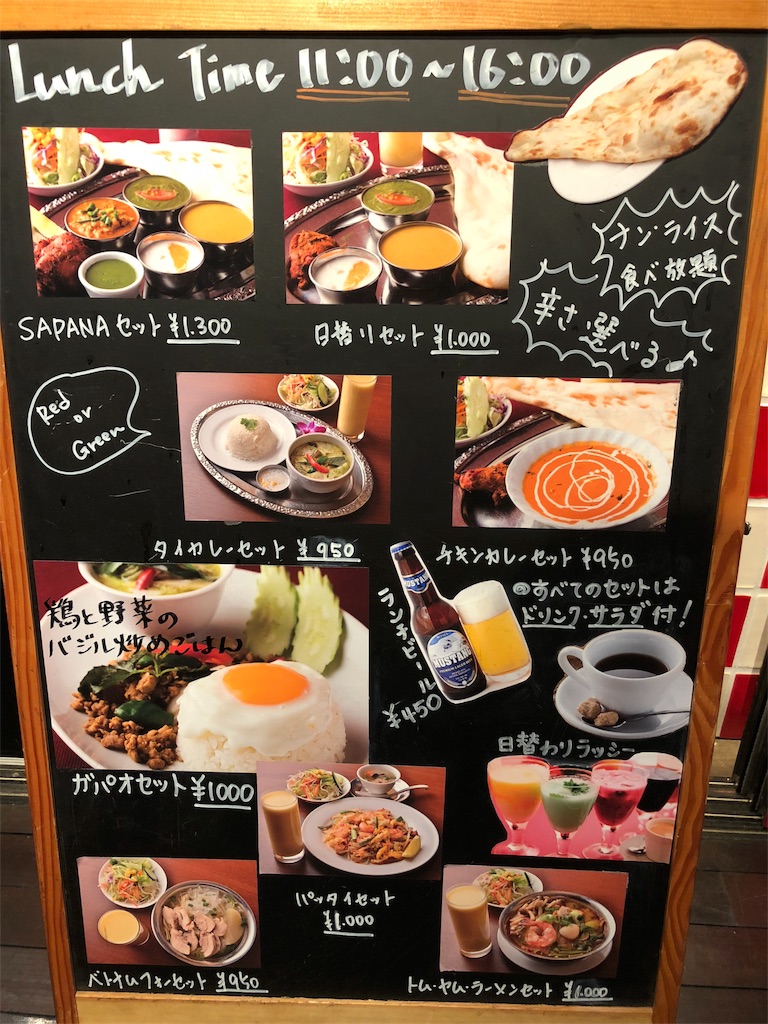 Lunch Time 11:00~16:00
ナン・ライス
食べ放題
辛さ選べる♪
SAPANAセット ¥1.300
日替りセット ¥1.000
Red
or
Green
タイカレーセット ¥950
チキンカレーセット ¥950
@すべてのセットは
ドリンク・サラダ付!
鶏と野菜の
バジル炒めごはん
ランチビール
¥450
MUSTANG
MUSTANG
日替わりラッシー
ガパオセット ¥1000
パッタイセット
¥1.000
ベトナムフォーセット ¥950
トム・ヤム・ラーメンセット ¥1.000